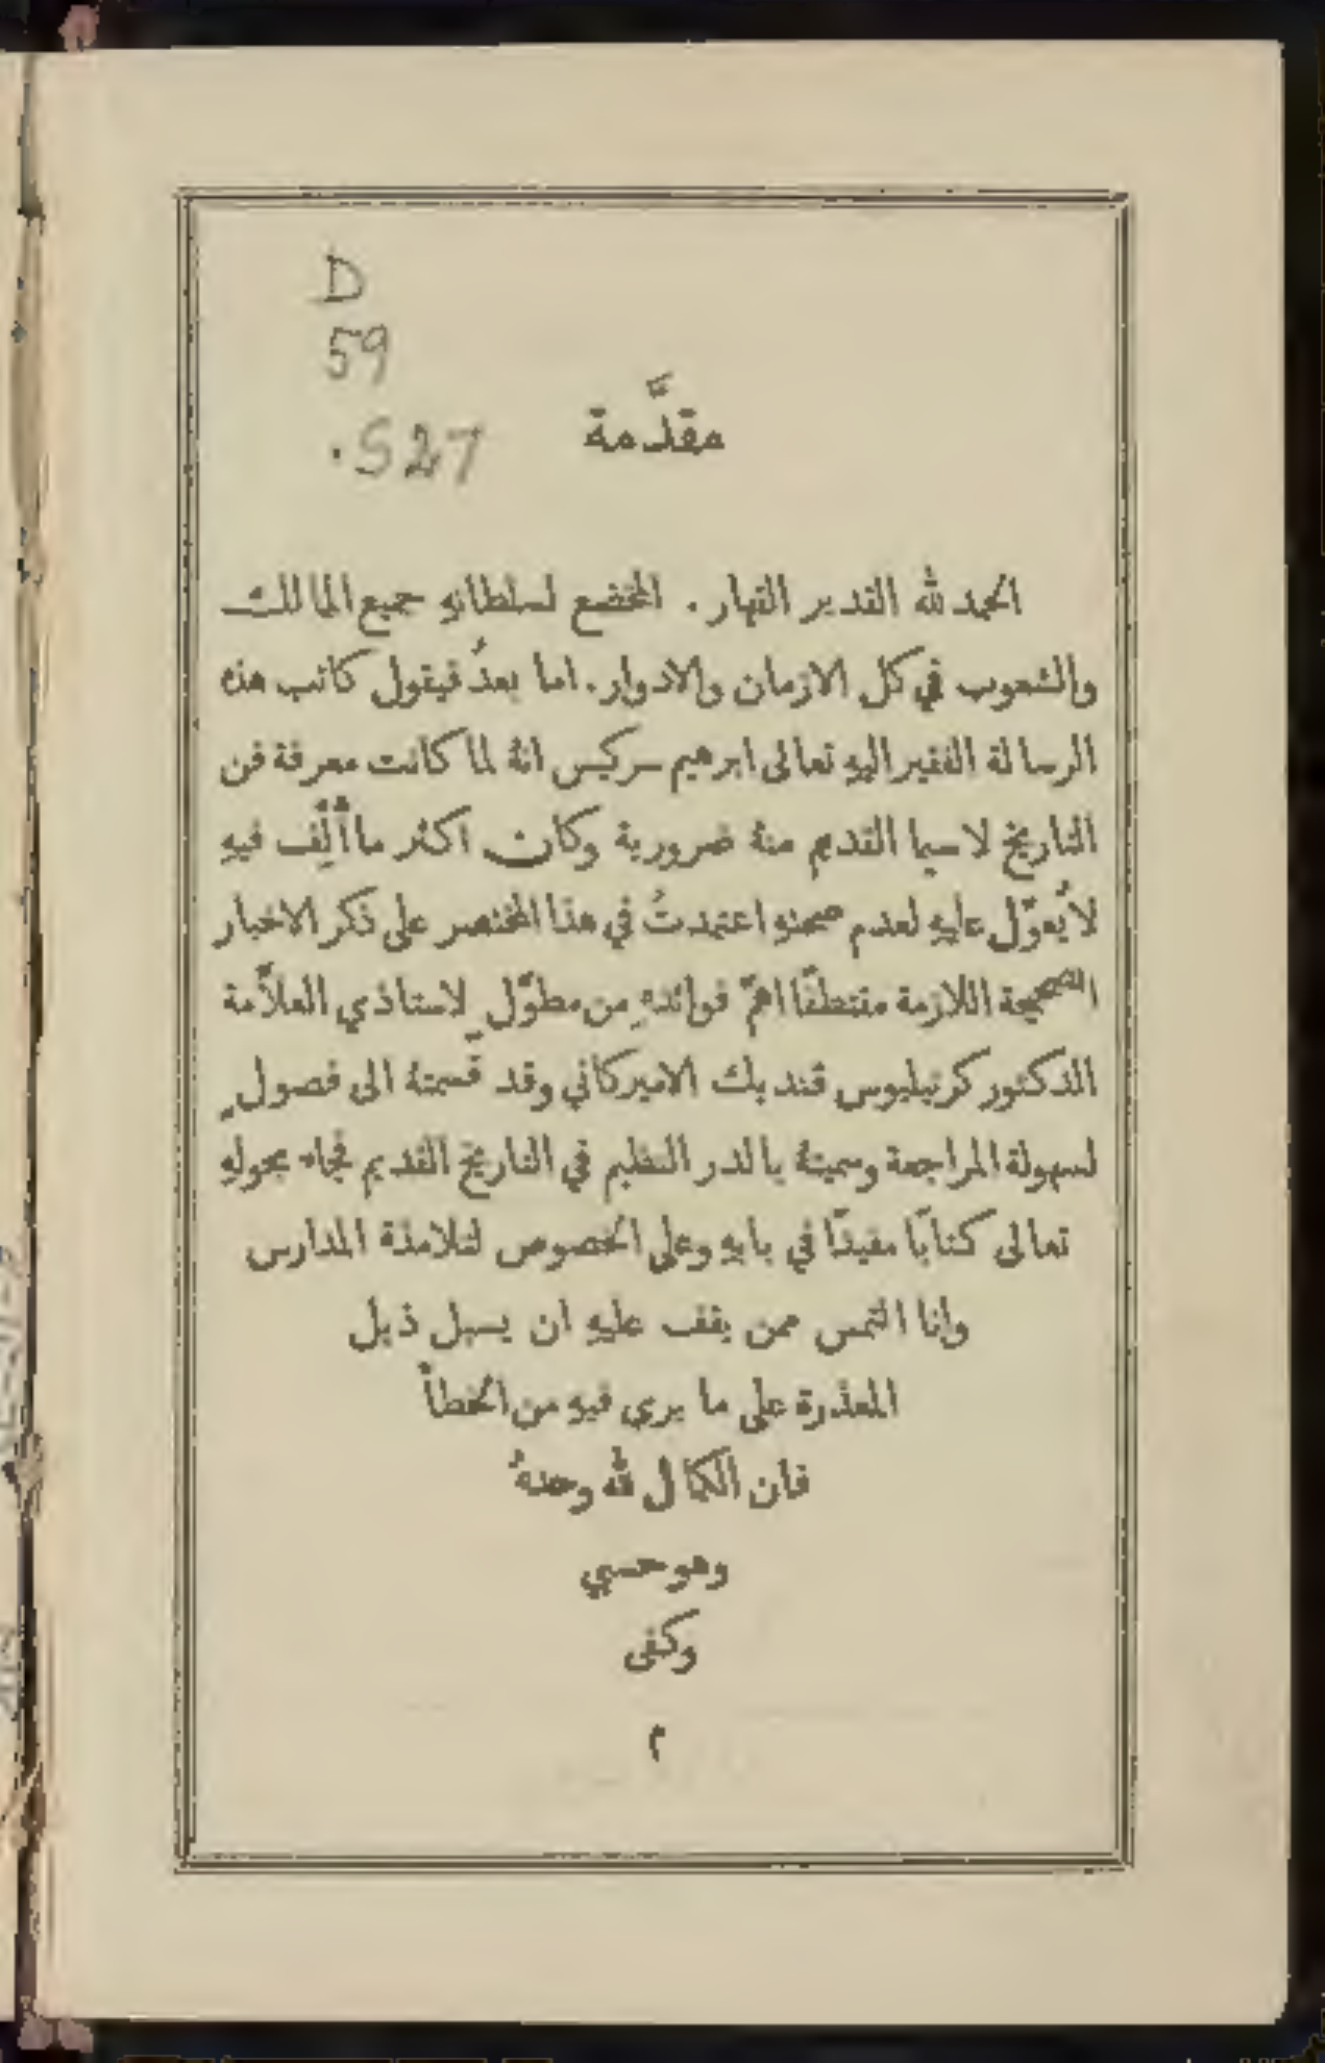 D
59
.S27
مقدَّمة
الحمد لله القدير القهار. المخضع لسلطانهِ جميع الممالك
والشعوب في كل الازمان والادوار. اما بعدُ فيقول كاتب هذه
الرسالة الفقير اليهِ تعالى ابرهيم سركيس انهُ لما كانت معرفة فن
التاريخ لاسيما القديم منهُ ضرورية وكان اكثر ما أُلِّف فيهِ
لا يُعوَّل عليهِ لعدم صحتهِ اعتمدتُ في هذا المختصر على ذكر الاخبار
الصحيحة اللازمة مقتطفًا اهمّ فوائدهِ من مطوَّلٍ لاستاذي العلَّامة
الدكتور كرنيليوس فنديك الاميركاني وقد قسَّمتهُ الى فصولٍ
لسهولة المراجعة وسميتهُ بالدر النظيم في التاريخ القديم فجاء بحولهِ
تعالى كتابًا مفيدًا في بابهِ وعلى الخصوص لتلامذة المدارس
وانا التمس ممن يقف عليهِ ان يسبل ذيل
المعذرة على ما يرى فيهِ من الخطأ
فان الكمال لله وحدهُ
وهو حسبي
وكفى
م